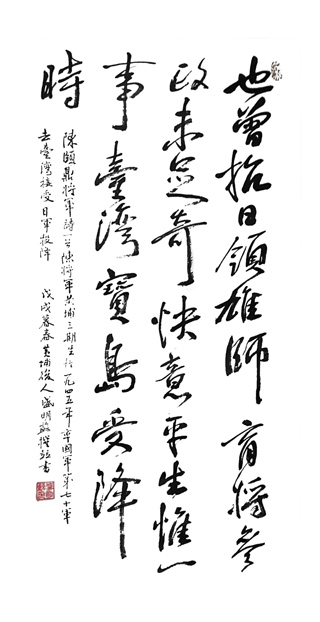 也曾抗日領雄師育將參
政未足奇快意平生惟一
事臺灣寶島受降
時
陳頤鼎將軍詩一首陳將軍黃埔三期生於一九四五年率國軍第七十軍
去臺灣接受日軍投降 戊戌暮春黃埔後人盛明敬撰並書